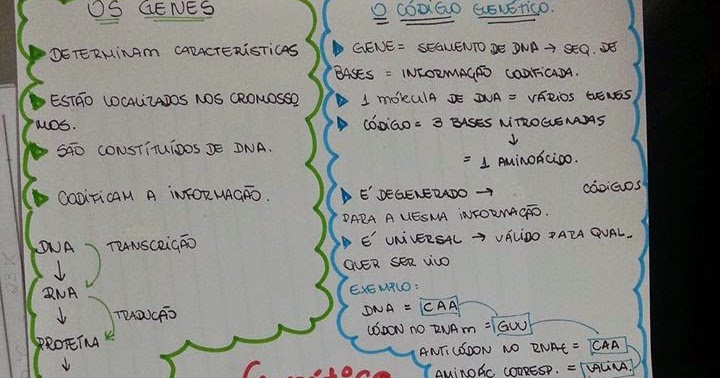 OS GENES
DETERMINAM CARACTERÍSTICAS
ESTÃO LOCALIZADOS NOS CROMOSSO
MOS.
SÃO CONSTITUÍDOS DE DNA.
CODIFICAM A INFORMAÇÃO.
DNA TRANSCRIÇÃO
↓
RNA
↓ TRADUCÃO
PROTEÍNA
↓
O CÓDIGO GENÉTICO.
GENE = SEGMENTO DE DNA → SEQ. DE
BASES = INFORMAÇÃO CODIFICADA.
1 MOLÉCULA DE DNA = VÁRIOS GENES
CÓDIGO = 3 BASES NITROGENADAS
↓
= 1 AMINOÁCIDO.
É DEGENERADO → CÓDIGOS
PARA A MESMA INFORMAÇÃO.
É UNIVERSAL → VÁLIDO PARA QUAL_
QUER SER VIVO
EXEMPLO:
DNA = CAA
CÓDON NO RNAm = GUU
ANTICÓDON NO RNAt = CAA
AMINOÁC CORRESP. = VALINA.